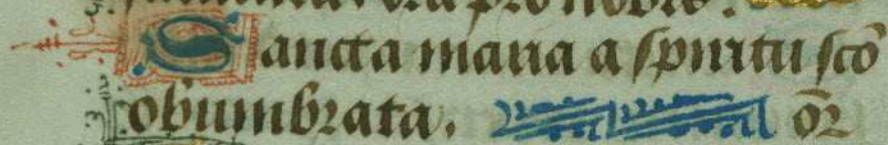 ora pro nobis.
Sancta maria a spiritu sc̄o
obumbrata. or̄